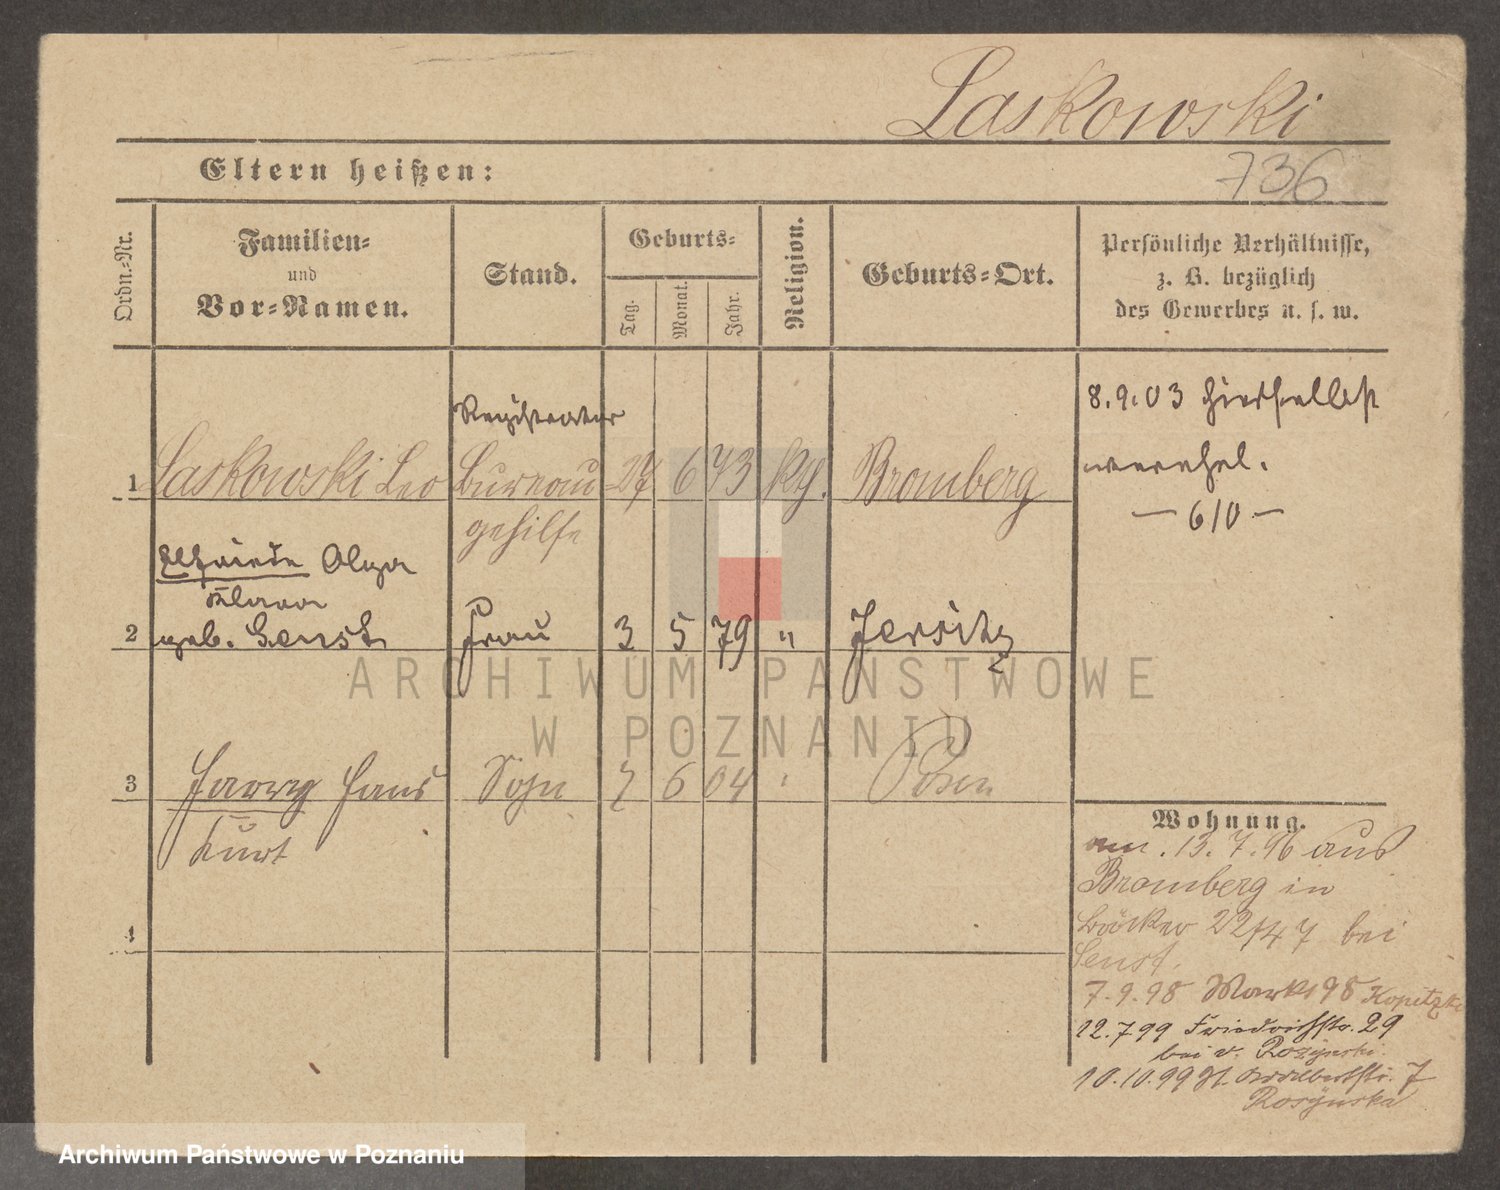 Laskowski
Eltern heißen:
736
Ordn.-Nr.
Familien-
und
Vor-Namen.
Stand.
Geburts-
Tag.
Monat.
Jahr.
Religion.
Geburts-Ort.
Persönliche Verhältnisse,
z. B. bezüglich
des Gewerbes u. s. w.
Registrator
1 Laskowski Leo Bureau- 27 6 73 kth. Bromberg
gehilfe
8.9.03 hierselbst
verehel.
— 610 —
Elfriede Olga
Klara
2 geb. Senst Frau 3 5 79 " Jersitz
3 Harry Hans Sohn 7 6 04 " Posen
Kurt
4
Wohnung.
am. 13.7.96 aus
Bromberg in
Bäcker 22/47 bei
Senst.
7.9.98 Markt 98 Kopitzke
12.7.99 Friedrichstr. 29
bei v. Rozynski.
10.10.99 St. Adalbertstr. 7
Rosynska
ARCHIWUM PAŃSTWOWE
W POZNANIU
Archiwum Państwowe w Poznaniu